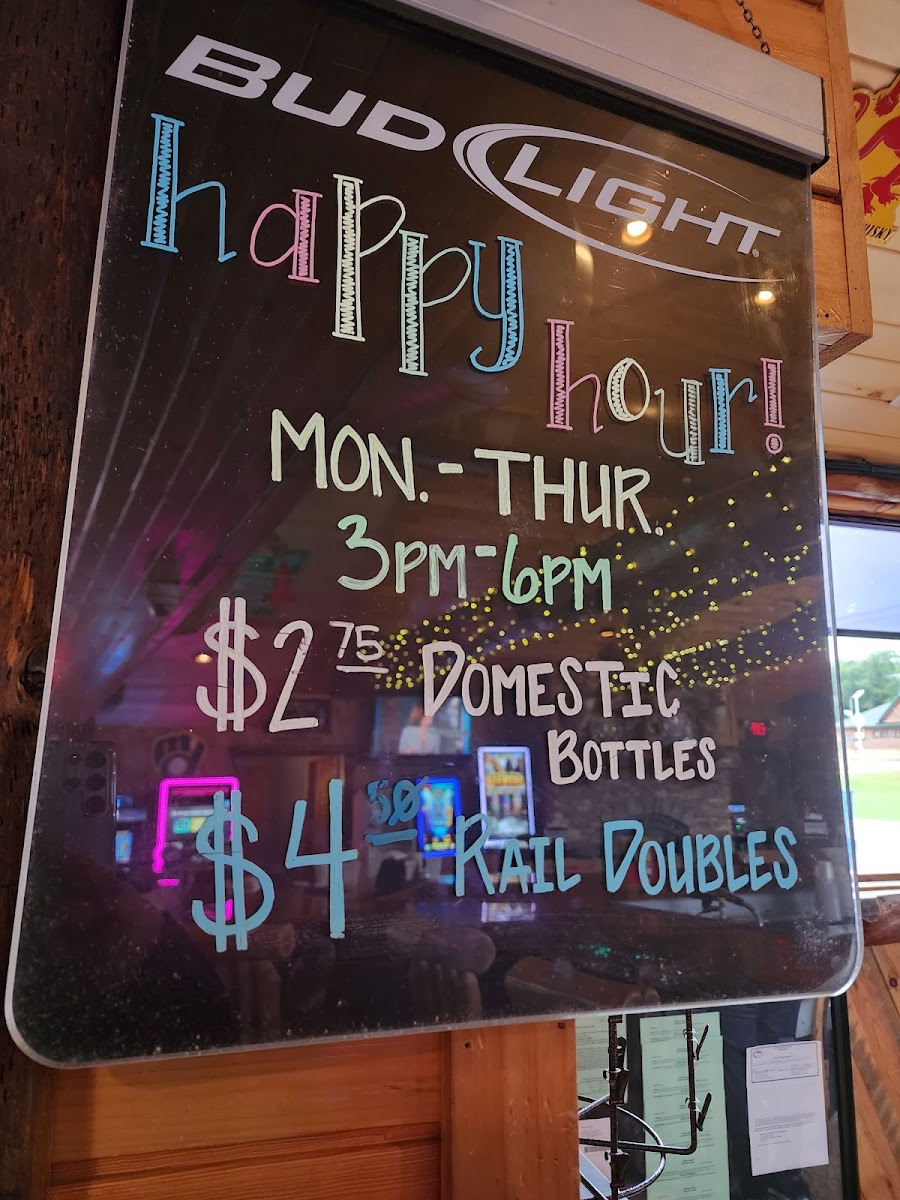 BUD LIGHT
happy
hour!
MON.-THUR.
3PM-6PM
$2.75 DOMESTIC
BOTTLES
$4.50 RAIL DOUBLES